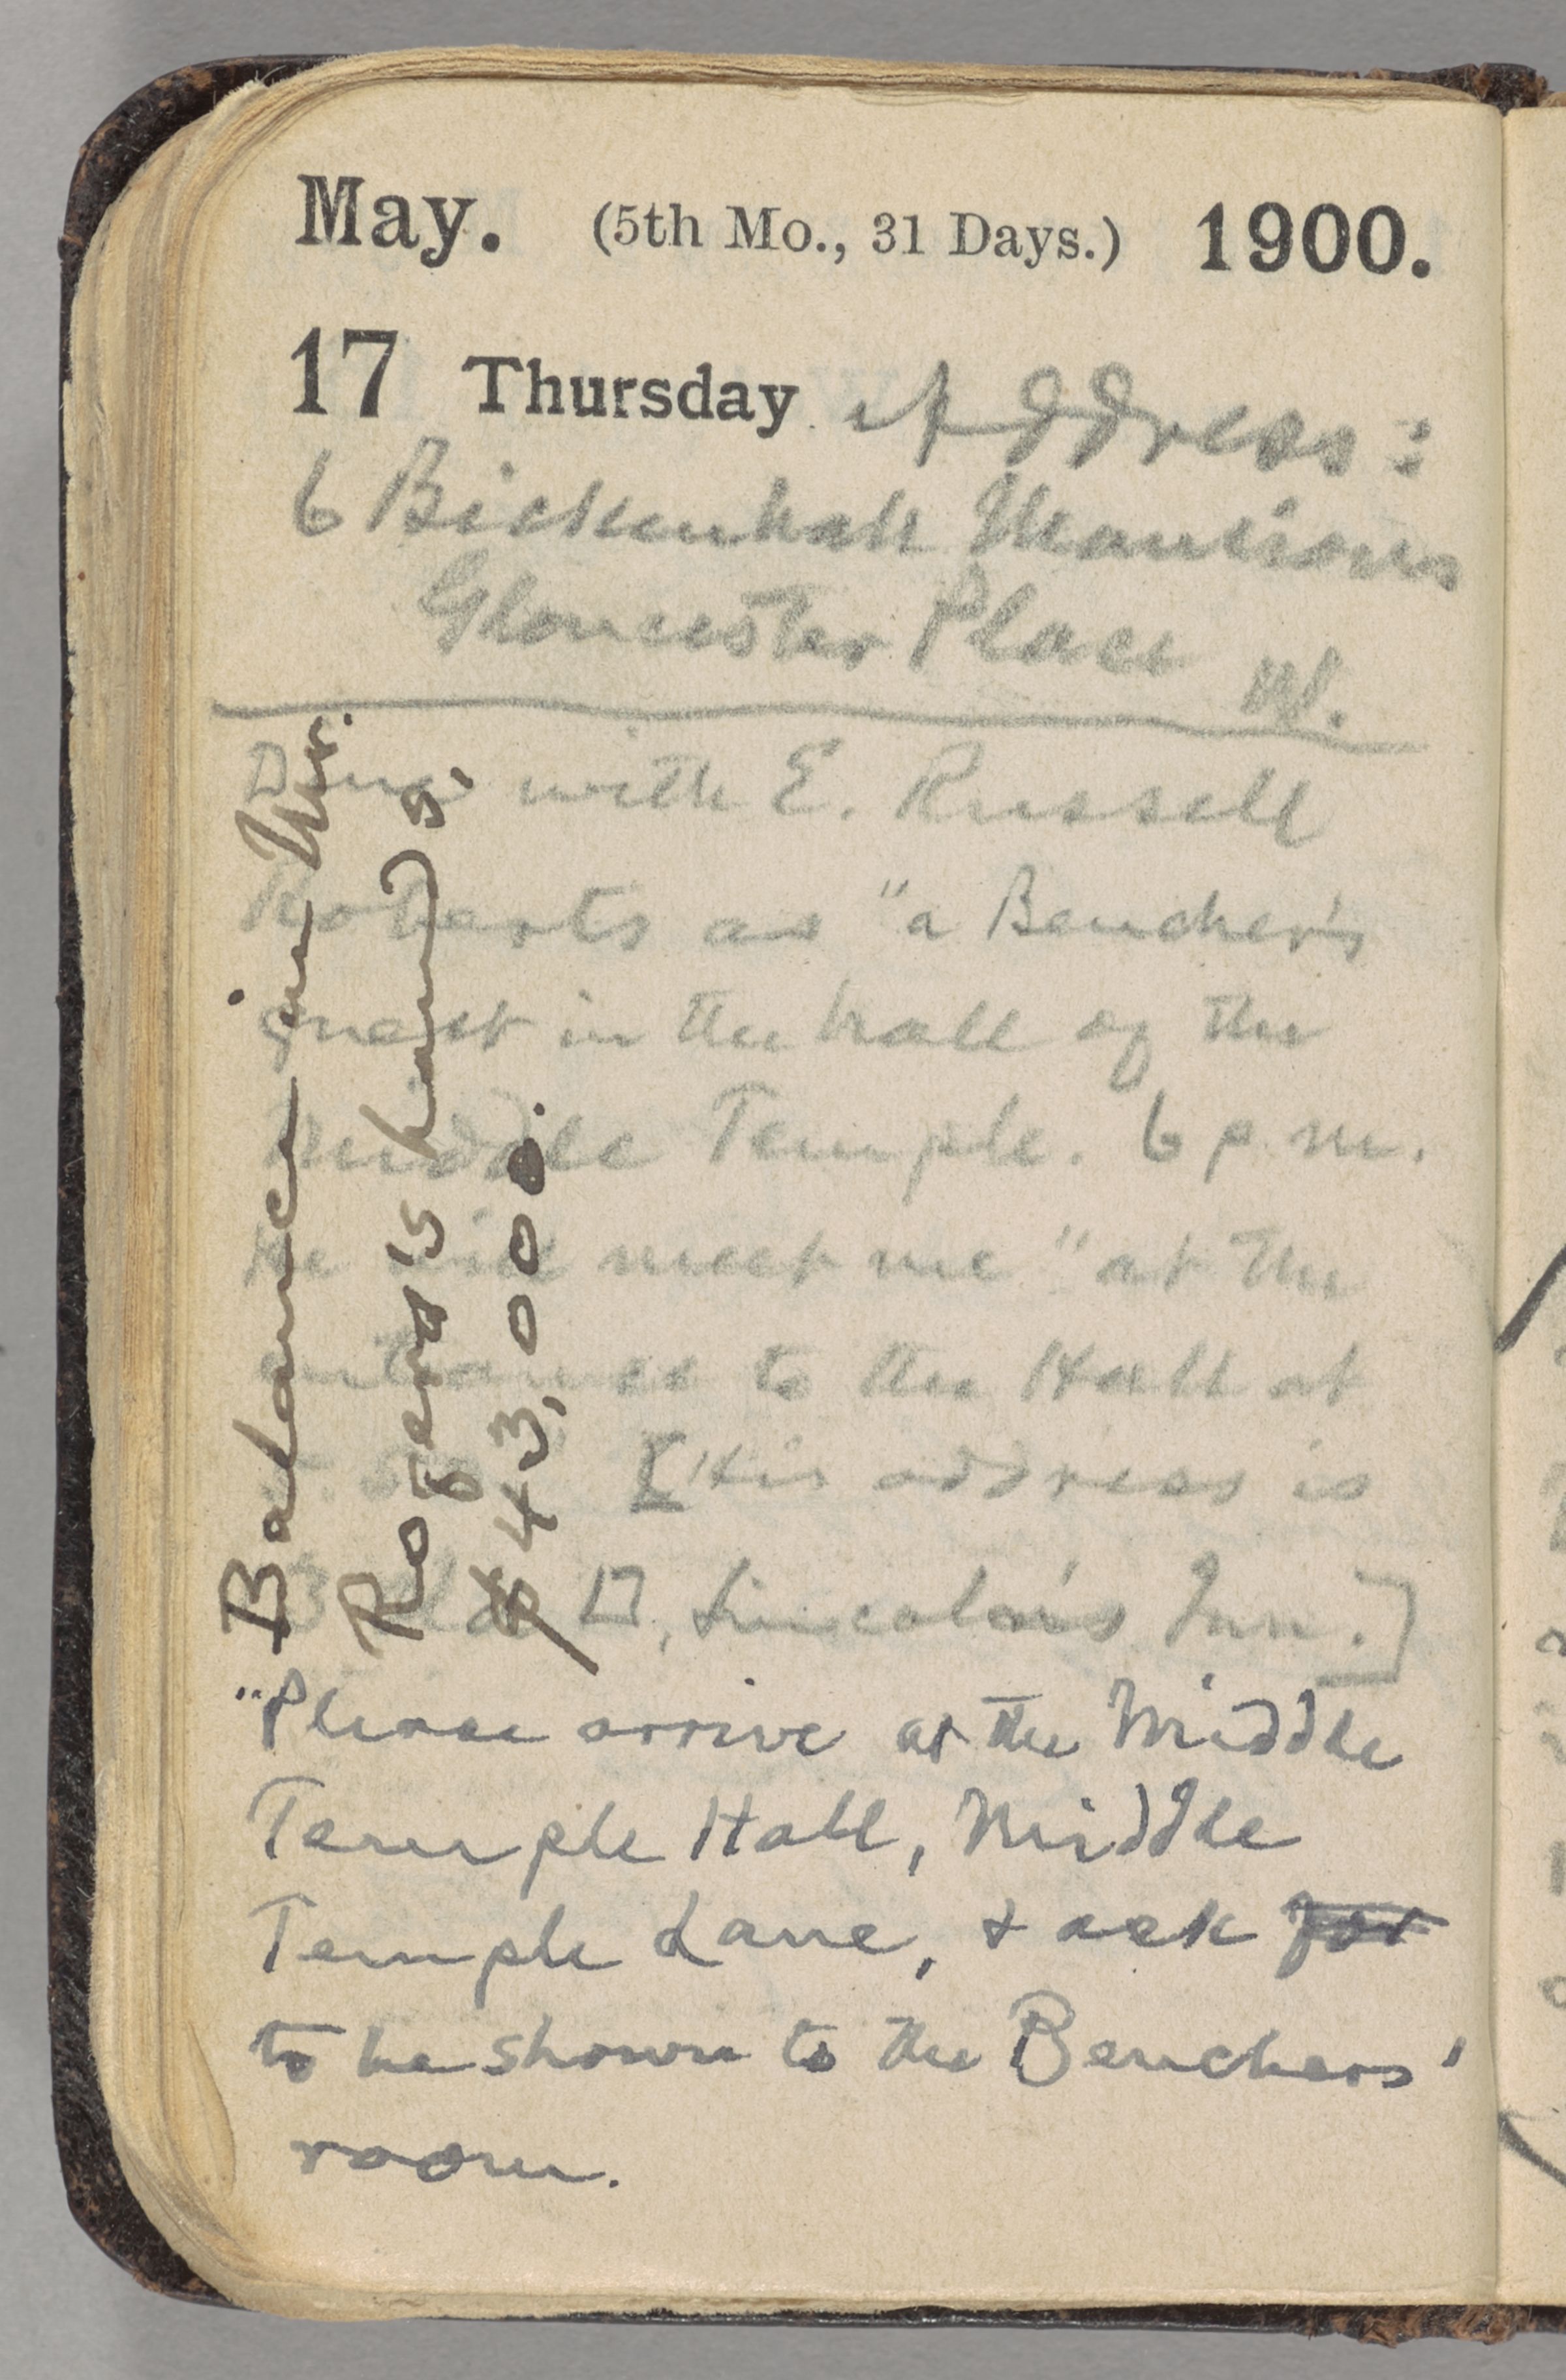 May. (5th Mo., 31 Days.) 1900.
17 Thursday Address:
6 Bickenhall Mansions
Gloucester Place W.
Dine with E. Russell
Roberts as "a Bencher's
guest in the hall of the
Middle Temple. 6 p.m.
He will meet me "at the
entrance to the Hall at
[His address is
3 Old □, Lincoln's Inn.]
"Please arrive at the Middle
Temple Hall, Middle
Temple Lane, & ask for
to be shown to the Benchers'
room.
Balance in Mr.
Rogers's hands,
$43,000.